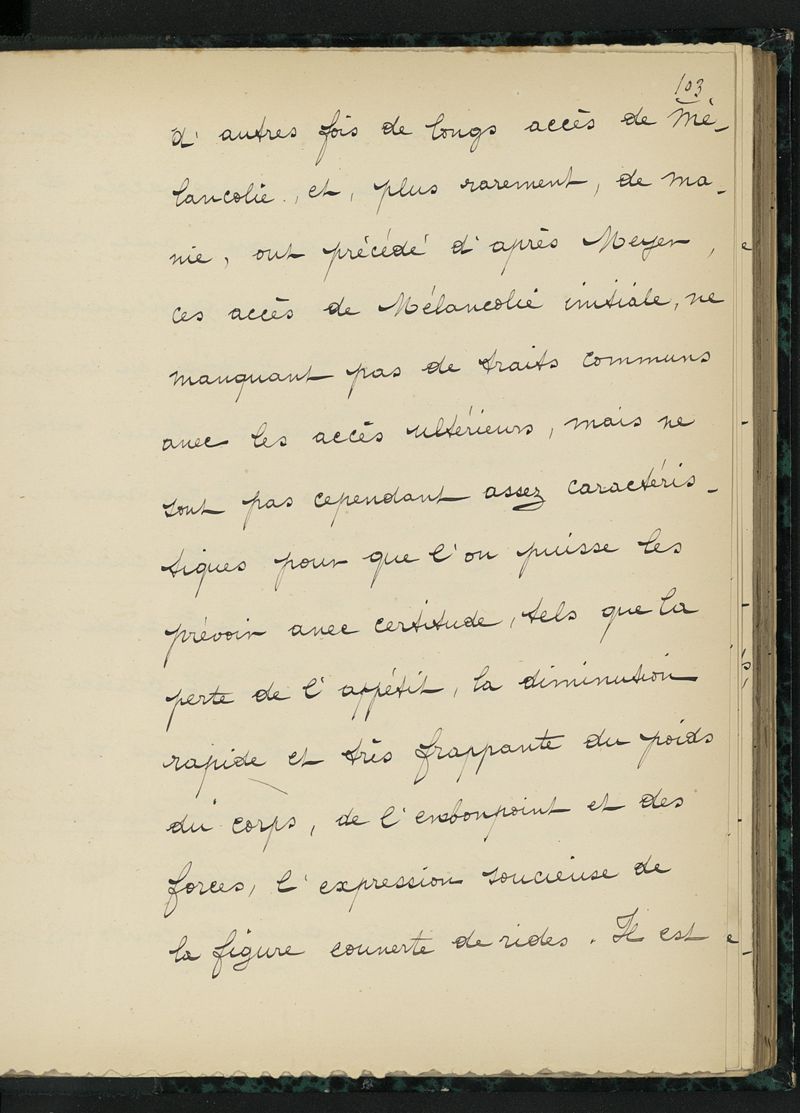 103
d'autres fois de longs accès de Mé-
lancolie, et, plus rarement, de ma-
nie, ont précédé d'après Meyer,
ces accès de Mélancolie initiale, ne
manquant pas de traits communs
avec les accès ultérieurs, mais ne
sont pas cependant assez caractéris-
tiques pour que l'on puisse les
prévoir avec certitude, tels que la
perte de l'appétit, la diminution
rapide et très frappante du poids
du corps, de l'embonpoint et des
forces, l'expression soucieuse de
la figure couverte de rides. Il est